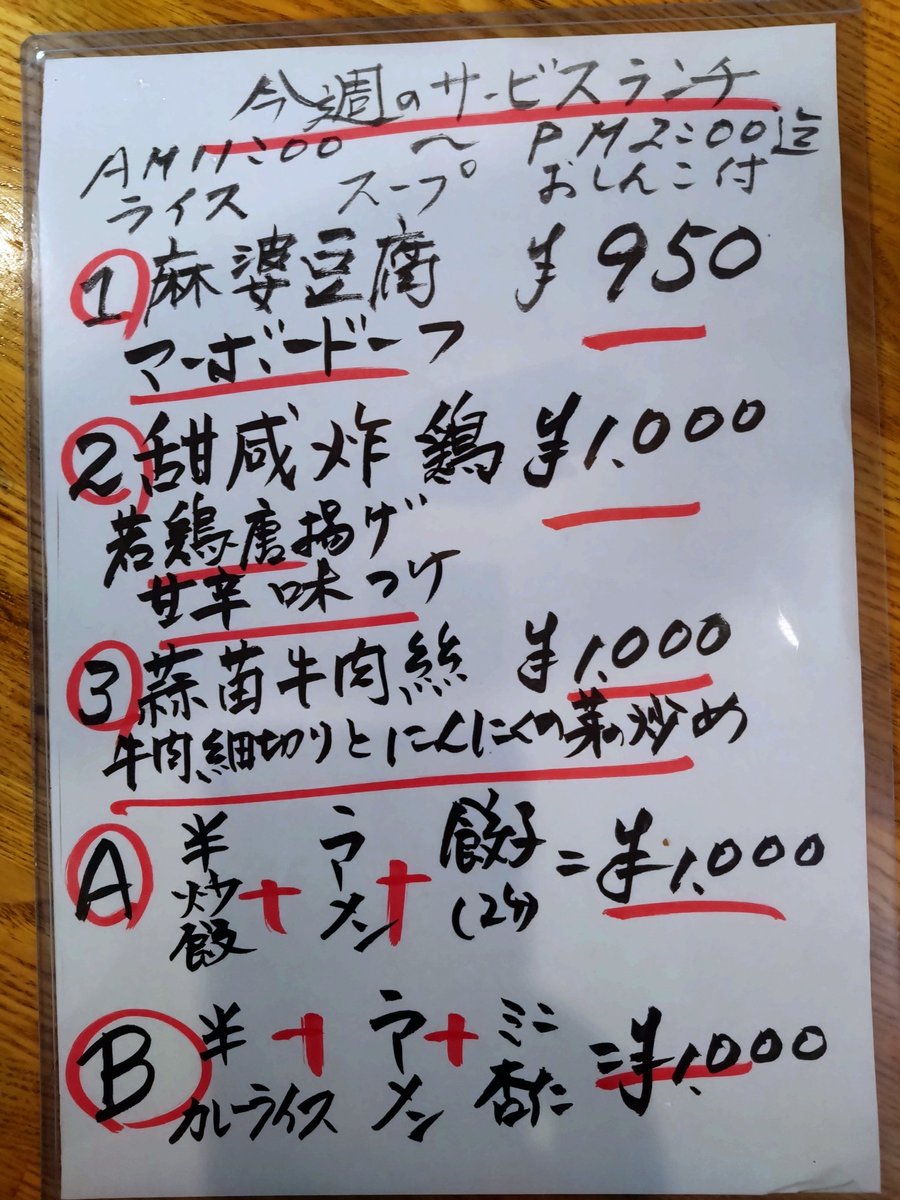 今週のサービスランチ
AM11:00 〜 PM2:00迄
ライス スープ おしんこ付
1 麻婆豆腐 ¥950
マーボードーフ
2 甜咸炸鶏 ¥1,000
若鶏唐揚げ
甘辛味つけ
3 蒜苗牛肉絲 ¥1,000
牛肉細切りとにんにくの菜の炒め
A 半炒飯 + ラーメン + 餃子(2ケ) = ¥1,000
B 半カレーライス + ラーメン + ミニ杏仁 = ¥1,000